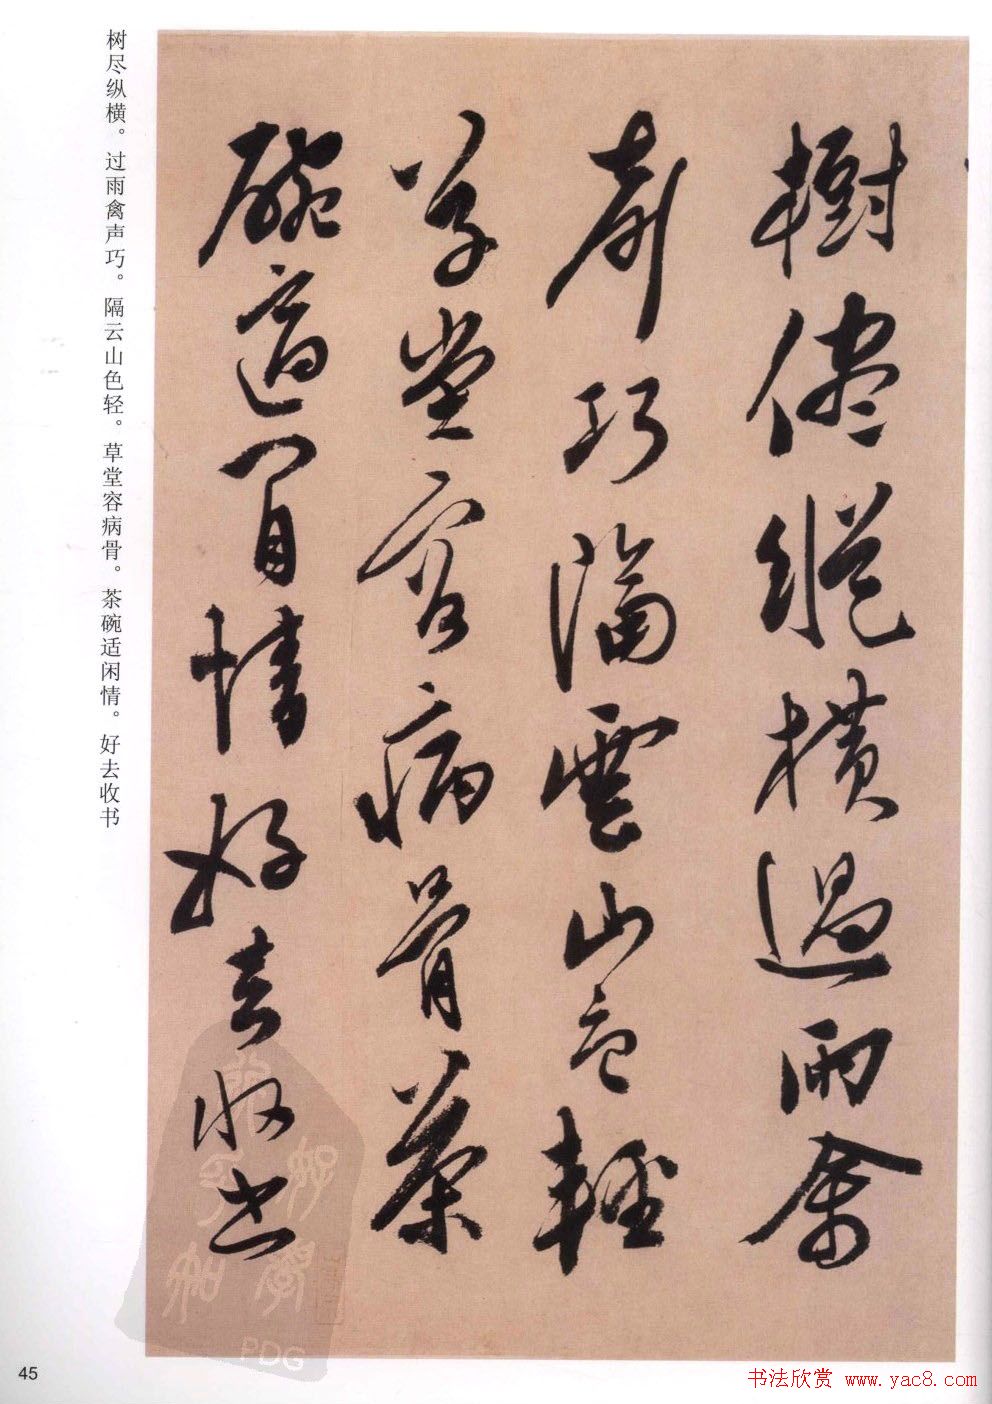 樹儘縱横過雨禽
聲巧隔雲山色輕
草堂容病骨茶
碗適閒情好去收书
树尽纵横。过雨禽声巧。隔云山色轻。草堂容病骨。茶碗适闲情。好去收书
PDG
45
书法欣赏 www.yac8.com